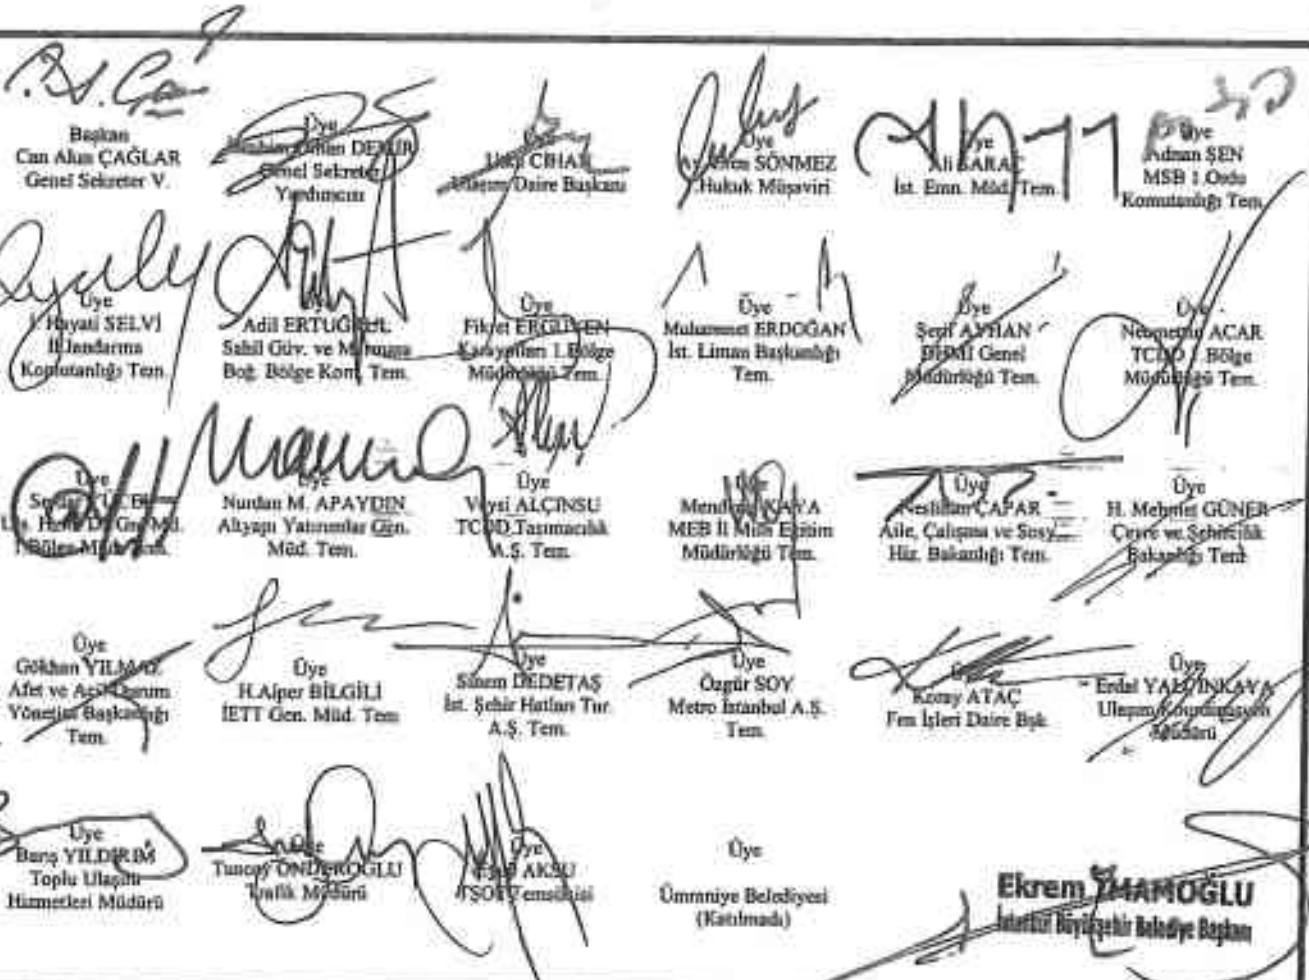 Başkan
Can Akın ÇAĞLAR
Genel Sekreter V.
Üye
Orhan DEMİR
Genel Sekreter
Yardımcısı
Üye
CİHAN
Ulaşım Daire Başkanı
Üye
SÖNMEZ
1.Hukuk Müşaviri
Üye
Ali SARAÇ
İst. Emn. Müd. Tem.
Üye
Adnan ŞEN
MSB 1.Ordu
Komutanlığı Tem.
Üye
Hayati SELVİ
İl Jandarma
Komutanlığı Tem.
Üye
Adil ERTUĞRUL
Sahil Güv. ve Marmara
Boğ. Bölge Kom. Tem.
Üye
Fikret ERGÜVEN
Karayolları 1.Bölge
Müdürlüğü Tem.
Üye
Muhammet ERDOĞAN
İst. Liman Başkanlığı
Tem.
Üye
Şerif AYHAN
DHMİ Genel
Müdürlüğü Tem.
Üye
Necmettin ACAR
TCDD 1.Bölge
Müdürlüğü Tem.
Üye
YÜCEL
Üye
Nurdan M. APAYDIN
Altyapı Yatırımlar Gen.
Müd. Tem.
Üye
Veysi ALÇINSU
TCDD Taşımacılık
A.Ş. Tem.
Üye
KAYA
MEB İl Milli Eğitim
Müdürlüğü Tem.
Üye
Neslihan ÇAPAR
Aile, Çalışma ve Sosy.
Hiz. Bakanlığı Tem.
Üye
H. Mehmet GÜNER
Çevre ve Şehircilik
Bakanlığı Tem.
Üye
Gökhan YILMAZ
Afet ve Acil Durum
Yönetim Başkanlığı
Tem.
Üye
H.Alper BİLGİLİ
İETT Gen. Müd. Tem
Üye
Sinem DEDETAŞ
İst. Şehir Hatları Tur.
A.Ş. Tem.
Üye
Özgür SOY
Metro İstanbul A.Ş.
Tem.
Üye
Koray ATAÇ
Fen İşleri Daire Bşk.
Üye
Erdal YALÇINKAYA
Ulaşım Koordinasyon
Müdürü
Üye
Barış YILDIRIM
Toplu Ulaşım
Hizmetleri Müdürü
Üye
Tuncay ÖNDEROĞLU
Trafik Müdürü
Üye
AKSU
TŞOF Temsilcisi
Üye
Ümraniye Belediyesi
(Katılmadı)
Ekrem İMAMOĞLU
İstanbul Büyükşehir Belediye Başkanı